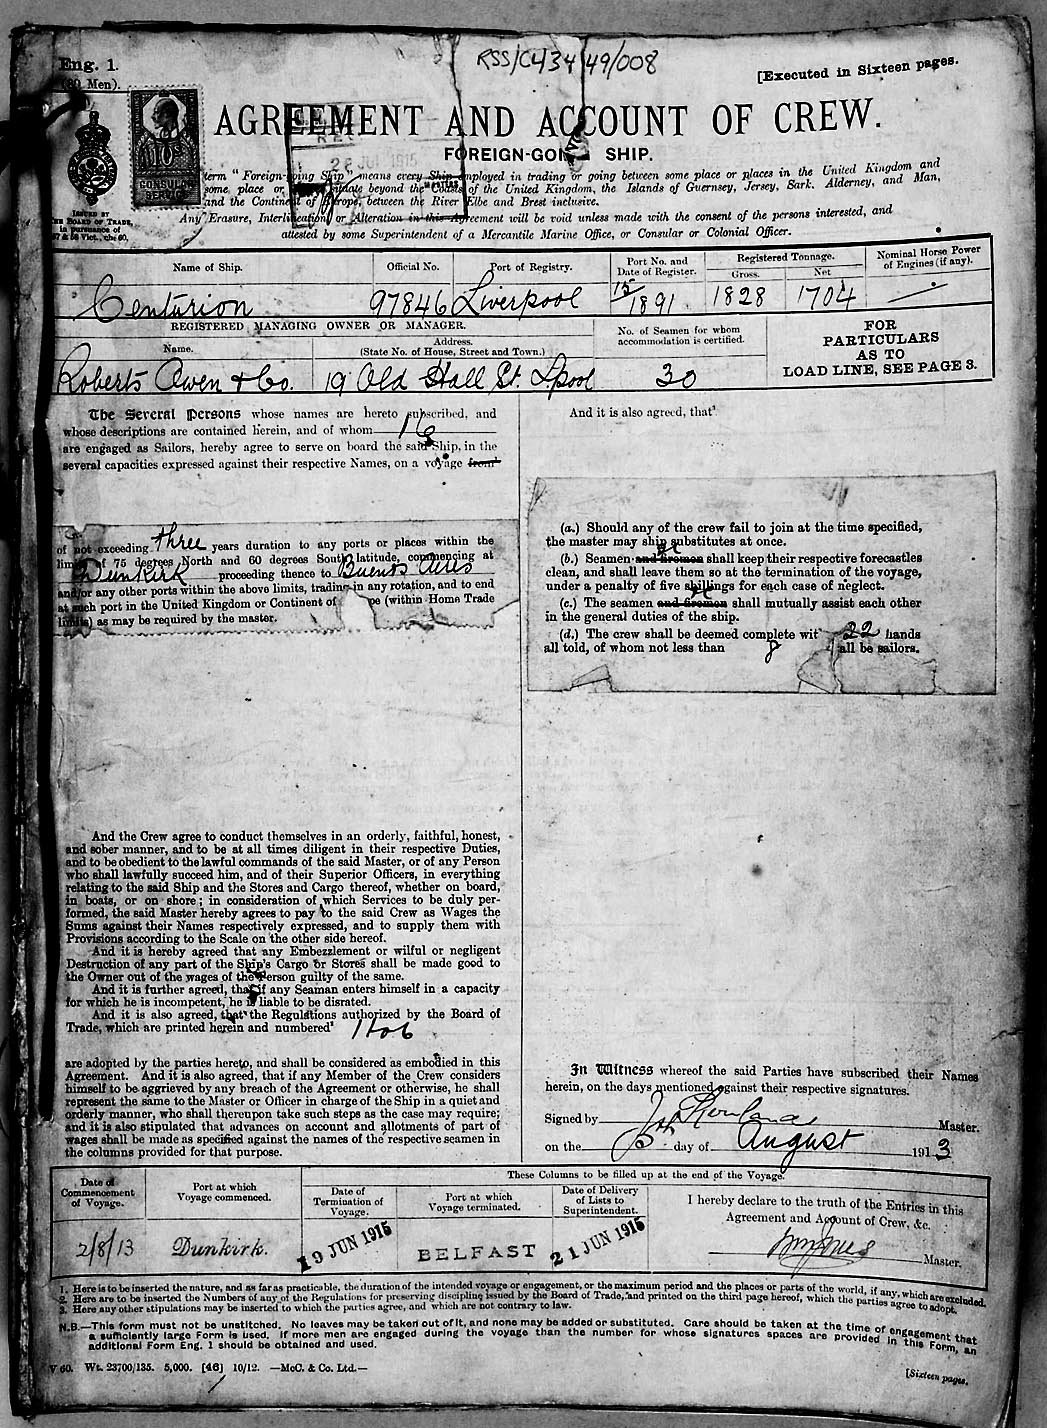 RSS/CL/434/49/008
Eng. 1.
Men).
[Executed in Sixteen pages.
AGREEMENT AND ACCOUNT OF CREW.
FOREIGN-GOING SHIP.
CONSULAR
SERVICE
ISSUED BY
THE BOARD OF TRADE,
in pursuance of
57 & 58 Vict., ch. 60.
term "Foreign-going Ship" means every Ship employed in trading or going between some place or places in the United Kingdom and
some place or, situate beyond the Coasts of the United Kingdom, the Islands of Guernsey, Jersey, Sark, Alderney, and Man,
and the Continent of Europe, between the River Elbe and Brest inclusive.
Any Erasure, Interlineation, or Alteration in this Agreement will be void unless made with the consent of the persons interested, and
attested by some Superintendent of a Mercantile Marine Office, or Consular or Colonial Officer.
Name of Ship. Official No. Port of Registry. Port No. and Date of Register. Registered Tonnage. Gross. Net Nominal Horse Power of Engines (if any).
Centurion 97846 Liverpool 15/1891 1828 1704
REGISTERED MANAGING OWNER OR MANAGER.
Name. Address. (State No. of House, Street and Town.)
No. of Seamen for whom accommodation is certified.
FOR
PARTICULARS
AS TO
LOAD LINE, SEE PAGE 3.
Roberts Owen & Co. 19 Old Hall St. Lpool 30
The Several Persons whose names are hereto subscribed, and
whose descriptions are contained herein, and of whom 16
are engaged as Sailors, hereby agree to serve on board the said Ship, in the
several capacities expressed against their respective Names, on a voyage from¹
of not exceeding three years duration to any ports or places within the
limits of 75 degrees North and 60 degrees South latitude, commencing at
Dunkirk proceeding thence to Buenos Aires
and/or any other ports within the above limits, trading in any rotation, and to end
at such port in the United Kingdom or Continent of pe (within Home Trade
limits) as may be required by the master.
And the Crew agree to conduct themselves in an orderly, faithful, honest,
and sober manner, and to be at all times diligent in their respective Duties,
and to be obedient to the lawful commands of the said Master, or of any Person
who shall lawfully succeed him, and of their Superior Officers, in everything
relating to the said Ship and the Stores and Cargo thereof, whether on board,
in boats, or on shore; in consideration of which Services to be duly per-
formed, the said Master hereby agrees to pay to the said Crew as Wages the
Sums against their Names respectively expressed, and to supply them with
Provisions according to the Scale on the other side hereof.
And it is hereby agreed that any Embezzlement or wilful or negligent
Destruction of any part of the Ship's Cargo or Stores shall be made good to
the Owner out of the wages of the Person guilty of the same.
And it is further agreed, that if any Seaman enters himself in a capacity
for which he is incompetent, he is liable to be disrated.
And it is also agreed, that the Regulations authorized by the Board of
Trade, which are printed herein and numbered² 1 to 6
are adopted by the parties hereto, and shall be considered as embodied in this
Agreement. And it is also agreed, that if any Member of the Crew considers
himself to be aggrieved by any breach of the Agreement or otherwise, he shall
represent the same to the Master or Officer in charge of the Ship in a quiet and
orderly manner, who shall thereupon take such steps as the case may require;
and it is also stipulated that advances on account and allotments of part of
wages shall be made as specified against the names of the respective seamen in
the columns provided for that purpose.
And it is also agreed, that³
(a.) Should any of the crew fail to join at the time specified,
the master may ship substitutes at once.
(b.) Seamen and firemen shall keep their respective forecastles
clean, and shall leave them so at the termination of the voyage,
under a penalty of five shillings for each case of neglect.
(c.) The seamen and firemen shall mutually assist each other
in the general duties of the ship.
(d.) The crew shall be deemed complete wit 22 hands
all told, of whom not less than 8 all be sailors.
In Witness whereof the said Parties have subscribed their Names
herein, on the days mentioned against their respective signatures.
Signed by Master.
on the day of August 1913
These Columns to be filled up at the end of the Voyage.
Date of Commencement of Voyage. Port at which Voyage commenced. Date of Termination of Voyage. Port at which Voyage terminated. Date of Delivery of Lists to Superintendent.
I hereby declare to the truth of the Entries in this
Agreement and Account of Crew, &c.
2/8/13 Dunkirk. 19 JUN 1915 BELFAST 21 JUN 1915
Master.
1. Here is to be inserted the nature, and as far as practicable, the duration of the intended voyage or engagement, or the maximum period and the places or parts of the world, if any, which are excluded.
2. Here are to be inserted the Numbers of any of the Regulations for preserving discipline issued by the Board of Trade, and printed on the third page hereof, which the parties agree to adopt.
3. Here any other stipulations may be inserted to which the parties agree, and which are not contrary to law.
N.B.—This form must not be unstitched. No leaves may be taken out of it, and none may be added or substituted. Care should be taken at the time of engagement that
a sufficiently large Form is used. If more men are engaged during the voyage than the number for whose signatures spaces are provided in this Form, an
additional Form Eng. 1 should be obtained and used.
V 60. Wt. 23700/135. 5,000. [46] 10/12. —McC. & Co. Ltd.—
[Sixteen pages.